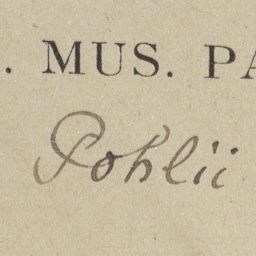 . MUS. PA
Pohlii